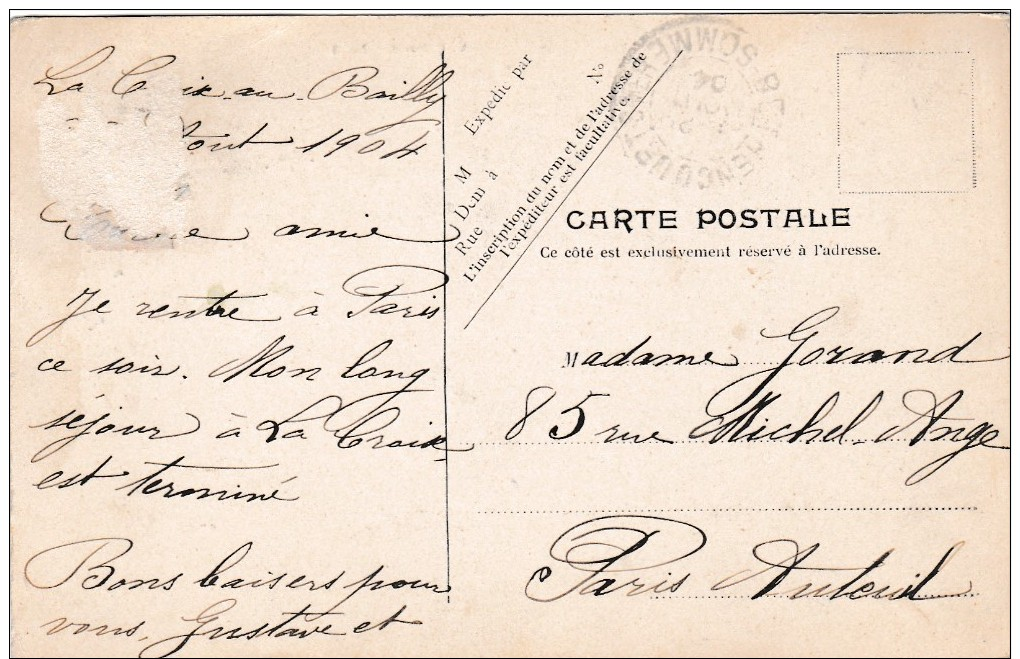 La Croix-au-Bailly
Août 1904
amie
Je rentre à Paris
ce soir. Mon long
séjour à La Croix
est terminé
Bons baisers pour
vous, Gustave et
Expédié par
M
Dem à
Rue
N°
L'inscription du nom et de l'adresse de
l'expéditeur est facultative.
SOMME
04
CARTE POSTALE
Ce côté est exclusivement réservé à l'adresse.
Madame Gorand
85 rue Michel-Ange
Paris Auteuil